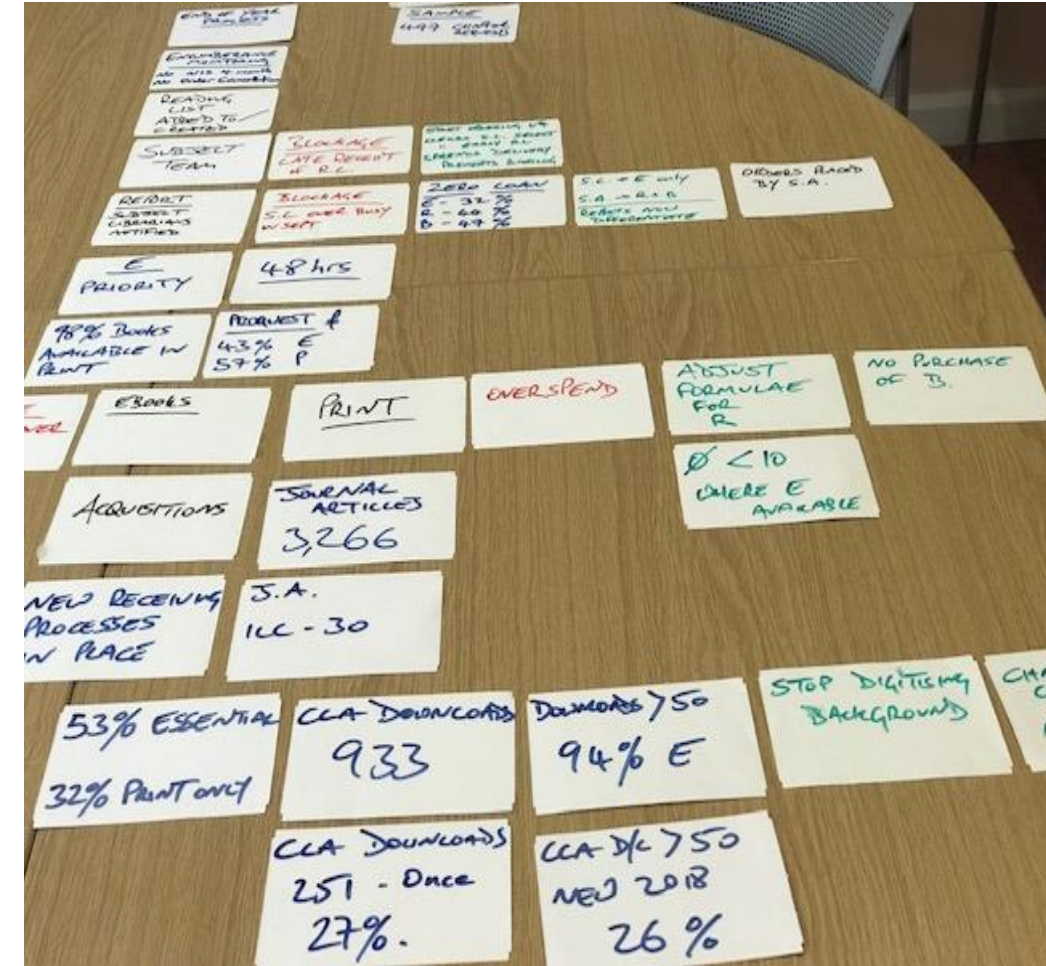 END OF YEAR
PROCESS
SAMPLE
497
ENCUMBERANCE
MONITORING
No
No Order
READING
LIST
ADDED TO /
CREATED
SUBJECT
TEAM
BLOCKAGE
LATE RECEIPT
OF R.L.
REPORT
SUBJECT
LIBRARIANS
NOTIFIED
BLOCKAGE
S.L OVER BUSY
IN SEPT
ZERO LOAN
E - 32 %
R - 40 %
B - 47 %
S.L = E only
S.A = R + B
REPORTS NOW
DIFFERENTIATE
ORDERS PLACED
BY S.A.
E
PRIORITY
48 hrs
98% BOOKS
AVAILABLE IN
PRINT
PROQUEST £
43% E
57% P
EBOOKS
PRINT
OVERSPEND
ADJUST
FORMULAE
FOR
R
NO PURCHASE
OF B.
ACQUISITIONS
JOURNAL
ARTICLES
3,266
Ø < 10
WHERE E
AVAILABLE
NEW RECEIVING
PROCESSES
IN PLACE
J.A.
ILL - 30
53% ESSENTIAL
32% PRINT ONLY
CLA DOWNLOADS
933
DOWNLOADS >50
94% E
STOP DIGITISING
BACKGROUND
CLA DOWNLOADS
251 - ONCE
27%.
CLA D/L >50
NEW 2018
26 %